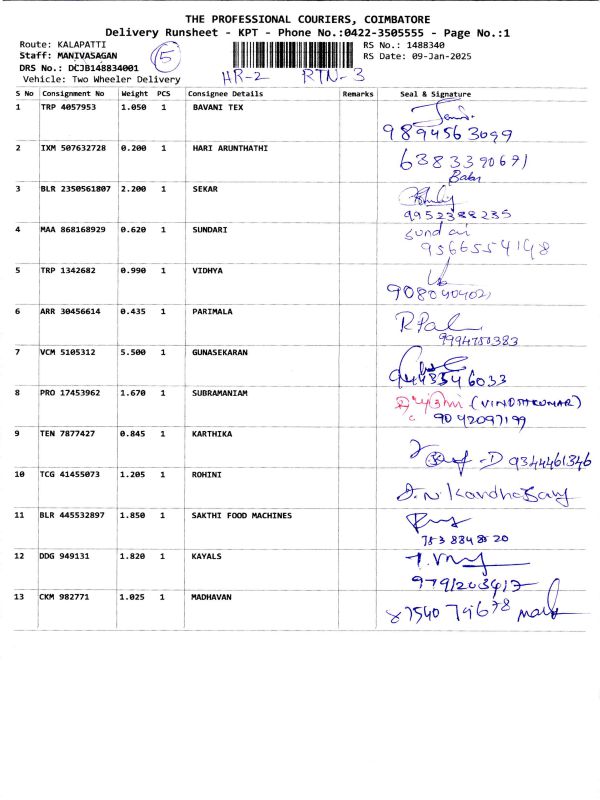 THE PROFESSIONAL COURIERS, COIMBATORE
Delivery Runsheet - KPT - Phone No.:0422-3505555 - Page No.:1
Route: KALAPATTI
Staff: MANIVASAGAN
DRS No.: DCJB148834001
Vehicle: Two Wheeler Delivery
5
HR-2 RTN-3
RS No.: 1488340
RS Date: 09-Jan-2025
S No Consignment No Weight PCS Consignee Details Remarks Seal & Signature
1 TRP 4057953 1.050 1 BAVANI TEX
9894563099
2 IXM 507632728 0.200 1 HARI ARUNTHATHI
6383390691
Babu
3 BLR 2350561807 2.200 1 SEKAR
9952388235
4 MAA 868168929 0.620 1 SUNDARI
Sundari
9566554148
5 TRP 1342682 0.990 1 VIDHYA
9080404021
6 ARR 30456614 0.435 1 PARIMALA
R Pal
9994750383
7 VCM 5105312 5.500 1 GUNASEKARAN
9443546033
8 PRO 17453962 1.670 1 SUBRAMANIAM
(VINOTHKUMAR)
9042097199
9 TEN 7877427 0.845 1 KARTHIKA
9344461346
10 TCG 41455073 1.205 1 ROHINI
11 BLR 445532897 1.850 1 SAKTHI FOOD MACHINES
7538848520
12 DDG 949131 1.820 1 KAYALS
9791203417
13 CKM 982771 1.025 1 MADHAVAN
8754079678